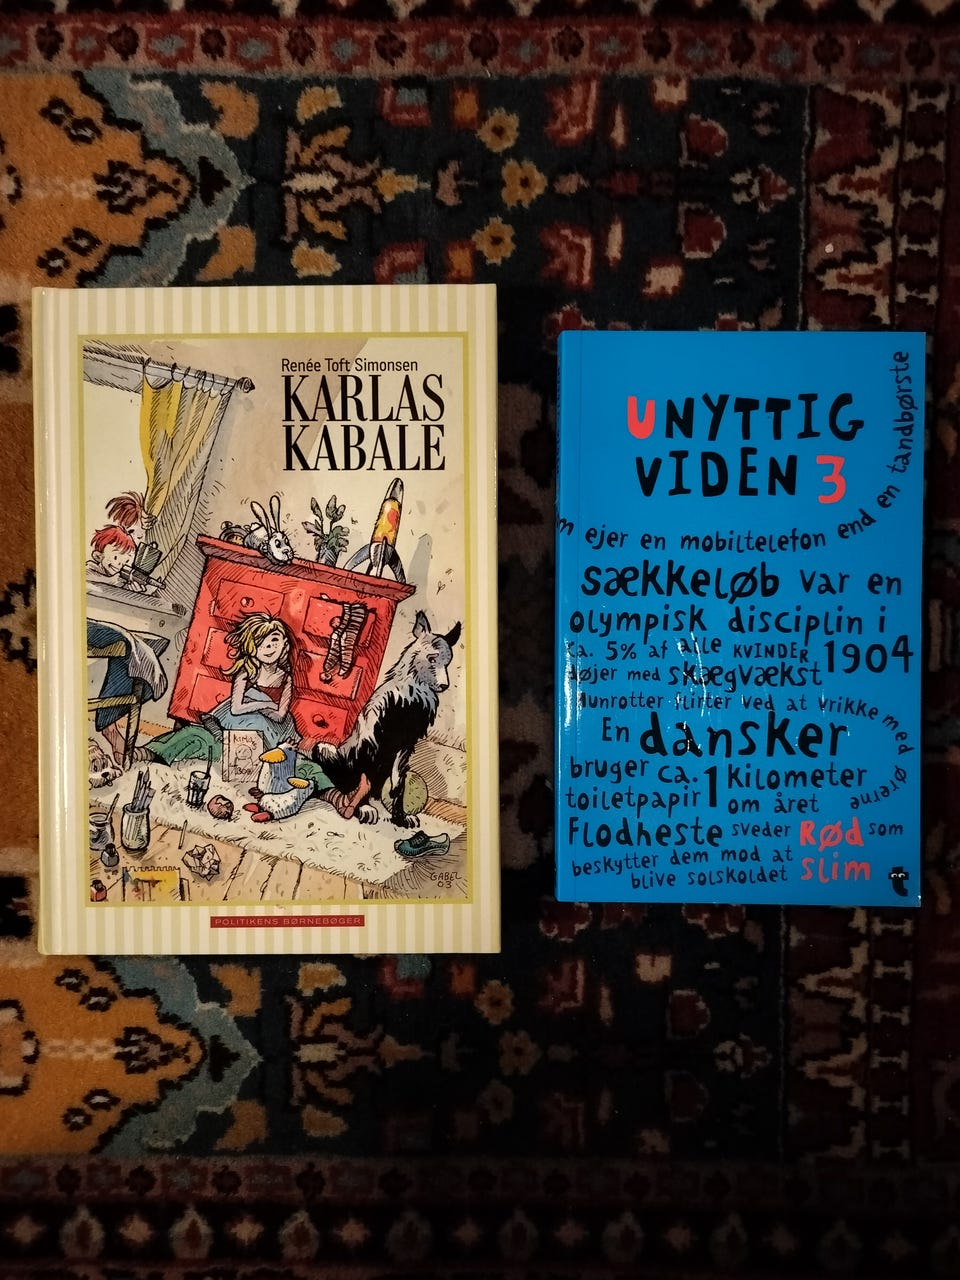 Renée Toft Simonsen
KARLAS
KABALE
Karla
GABEL
03
POLITIKENS BØRNEBØGER
UNYTTIG
VIDEN 3
ejer en mobiltelefon end en tandbørste
sækkeløb var en
olympisk disciplin i
1904
ca. 5% af alle KVINDER
døjer med skægvækst
Hunrotter flirter ved at vrikke med ørerne
En dansker
bruger ca. 1 kilometer
toiletpapir om året
Flodheste sveder Rød som
beskytter dem mod at slim
blive solskoldet